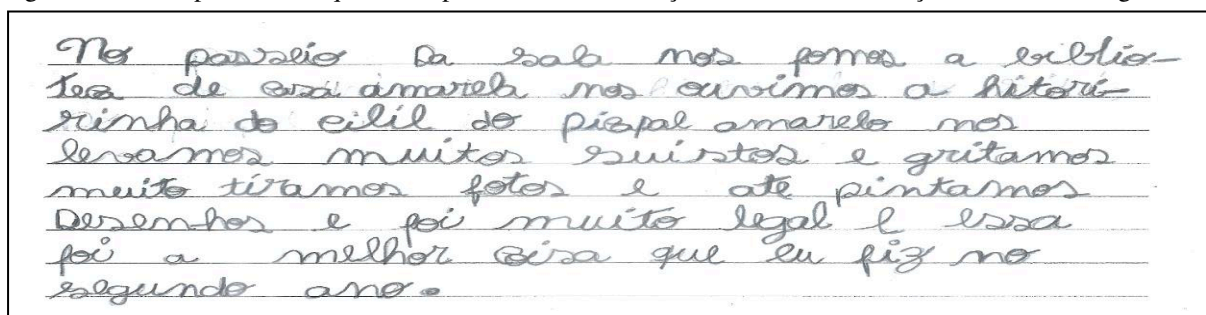 No passeio Da sala nos fomos a biblio-
teca de casa amarela nos ouvimos a hitori-
rinha do do pispal amarelo nos
levamos muitos suistos e gritamos
muito tiramos fotos e ate pintamos
Desenhos e foi muito legal e essa
foi a melhor coisa que eu fiz no
segundo ano.